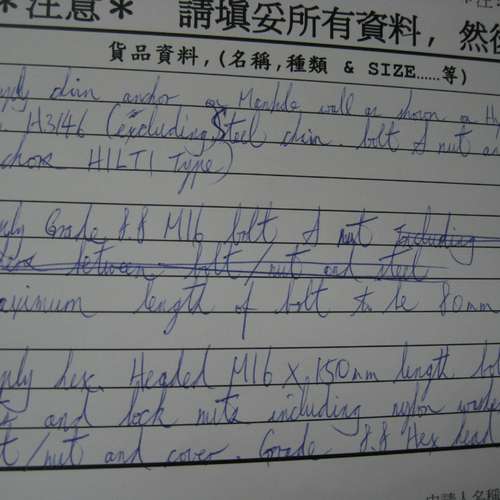 *注意* 請填妥所有資料, 然
貨品資料, (名稱,種類 & SIZE......等)
chain anchor on Manhole wall as shown on
H3146 (excluding Steel chain. bolt & nut
HILTI Type)
Grade 8.8 M16 bolt & nut including
between bolt/nut and steel
length of bolt to be 80mm
hex. Headed M16 X 150mm length
and lock nuts including nylon
/nut and cover. Grade 8.8 Hex head